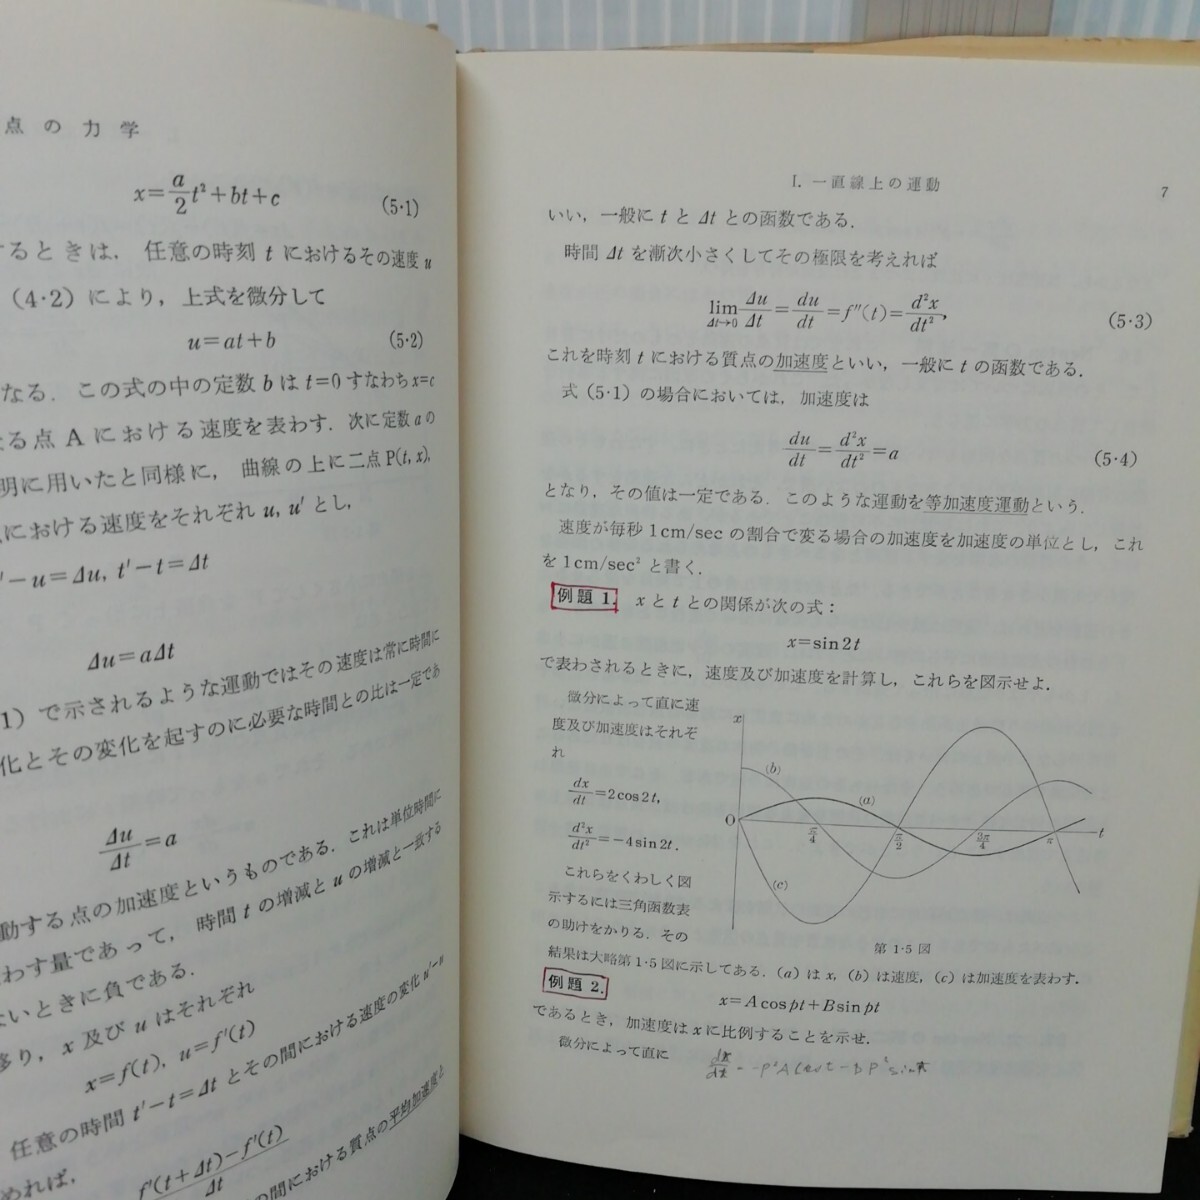 点の力学
x=a/2 t²+bt+c (5·1)
するときは． 任意の時刻 t におけるその速度 u
(4·2) により，上式を微分して
u=at+b (5·2)
なる．この式の中の定数 b は t=0 すなわち x=c
なる点 A における速度を表わす．次に定数 a の
明に用いたと同様に， 曲線の上に二点 P(t, x),
における速度をそれぞれ u, u′ とし，
′−u=Δu, t′−t=Δt
Δu=aΔt
1) で示されるような運動ではその速度は常に時間に
化とその変化を起すのに必要な時間との比は一定であ
Δu/Δt=a
動する点の加速度というものである．これは単位時間に
わす量であって， 時間 t の増減と u の増減と一致する
ないときに負である．
移り，x 及び u はそれぞれ
x=f(t), u=f′(t)
任意の時間 t′−t=Δt とその間における速度の変化 u′−u
めれば，
f′(t+Δt)−f′(t)/Δt
の間における質点の平均加速度と
I. 一直線上の運動 7
いい，一般に t と Δt との函数である．
時間 Δt を漸次小さくしてその極限を考えれば
lim Δt→0 Δu/Δt=du/dt=f″(t)=d²x/dt², (5·3)
これを時刻 t における質点の加速度といい，一般に t の函数である．
式 (5·1) の場合においては，加速度は
du/dt=d²x/dt²=a (5·4)
となり，その値は一定である．このような運動を等加速度運動という．
速度が毎秒 1cm/sec の割合で変る場合の加速度を加速度の単位とし，これ
を 1cm/sec² と書く．
例題 1. x と t との関係が次の式：
x=sin2t
で表わされるときに，速度及び加速度を計算し，これらを図示せよ．
微分によって直に速
度及び加速度はそれぞ
れ
dx/dt=2cos2t,
d²x/dt²=−4sin2t.
これらをくわしく図
示するには三角函数表
の助けをかりる．その
x
(b)
(a)
O π/4 π/2 3π/4 π t
(c)
第 1·5 図
結果は大略第 1·5 図に示してある．(a) は x, (b) は速度，(c) は加速度を表わす．
例題 2.
x=Acospt+Bsinpt
であるとき，加速度は x に比例することを示せ．
微分によって直に